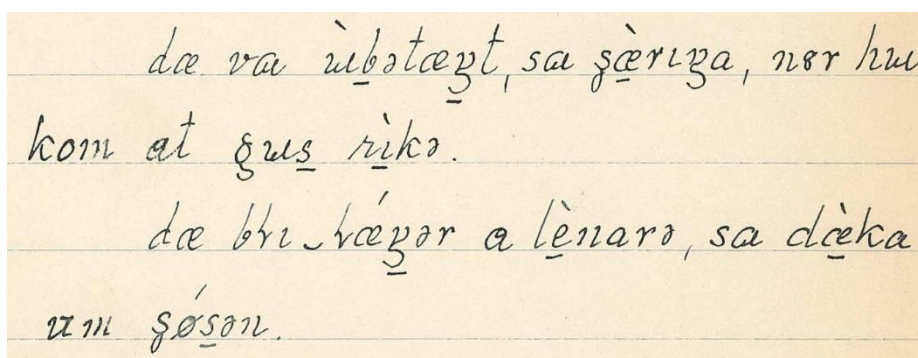 dæ va ùb̲ətæŋ̲t, sa ʂæ̲̀rıŋa, nɵr hu
kom at gus̲ rì̲kə.
dæ blı‿lǽŋ̲ər a lè̲narə, sa dæ̲̀ka
um gǿs̲ən.